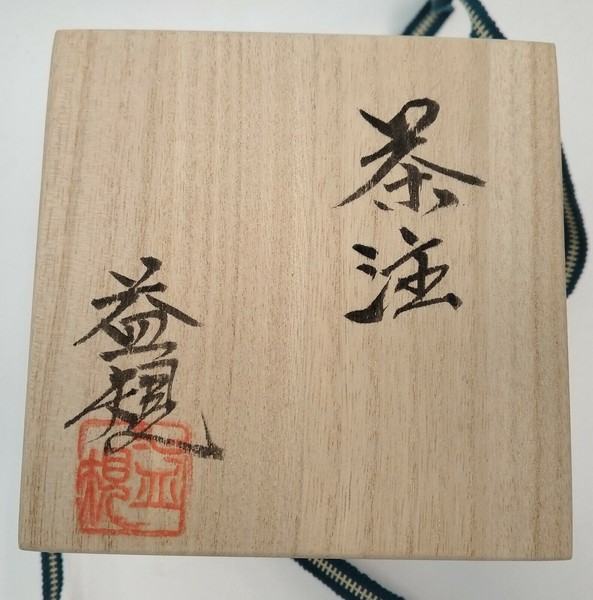 茶注
益規
益規